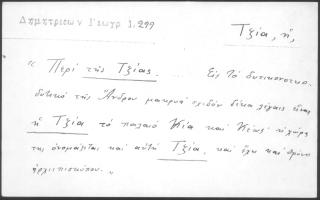 Δημητριέων Γεωγρ 1.299
Τζία, ἡ,
" Περὶ τῆς Τζίας. ... Εἰς τὸ δυτικονοτιο-
δυτικό τῆς Ἄνδρου μακρυά σχεδόν δέκα λεύγαις εἶναι
ἡ Τζία τὸ παλαιό Κία καὶ Κέως· ἡ χώρα
της ὀνομάζεται καὶ αὐτή Τζία, καὶ ἔχει καὶ θρόνο
ἀρχιεπισκόπου. "